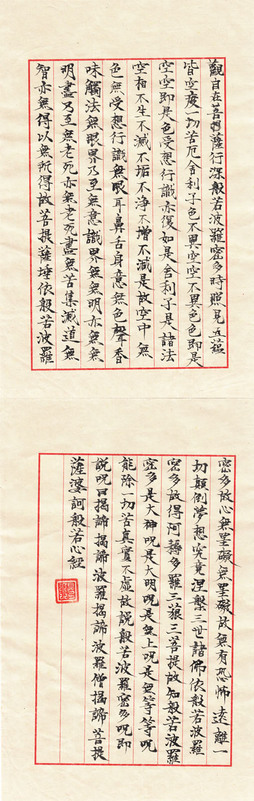 觀自在菩薩行深般若波羅密多時照見五蘊
皆空度一切苦厄舍利子色不異空空不異色色即是
空空即是色受想行識亦復如是舍利子是諸法
空相不生不滅不垢不淨不增不減是故空中無
色無受想行識無眼耳鼻舌身意無色聲香
味觸法無眼界乃至無意識界無無明亦無無
明盡乃至無老死亦無老死盡無苦集滅道無
智亦無得以無所得故菩提薩埵依般若波羅
密多故心無罣礙無罣礙故無有恐怖遠離一
切顛倒夢想究竟涅槃三世諸佛依般若波羅
密多故得阿耨多羅三藐三菩提故知般若波羅
密多是大神呪是大明呪是無上呪是無等等呪
能除一切苦真實不虛故說般若波羅密多呪即
說呪曰揭諦揭諦波羅揭諦波羅僧揭諦菩提
薩婆訶般若心經